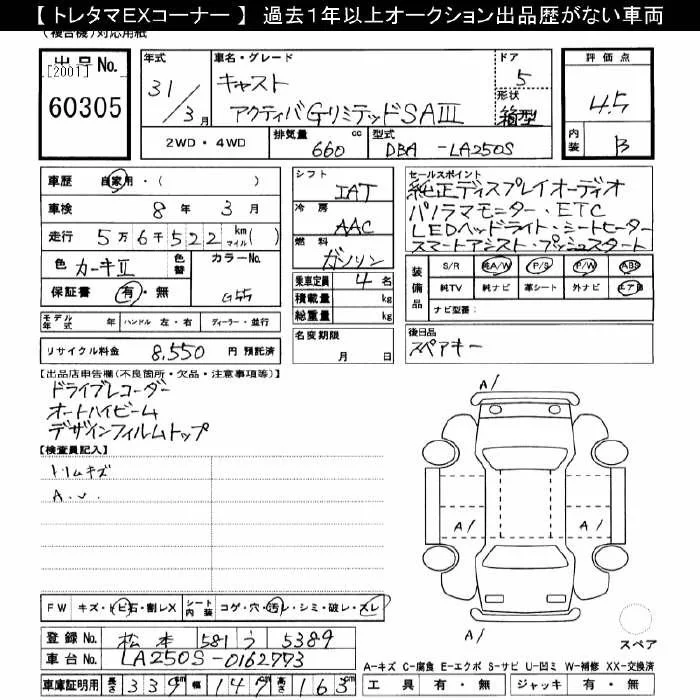 【 トレタマEXコーナー 】 過去1年以上オークション出品歴がない車両
(複合機)対応用紙
出品No.
[2001]
60305
年式
31/3月
車名・グレード
キャスト
アクティバGリミテッドSAIII
ドア
5
形状
箱型
評価点
4.5
内装
B
2WD・4WD
排気量
660 cc
型式
DBA -LA250S
車歴 自家用・( )
車検 8年 3月
走行 5万6千522 km マイル( )
色 カーキII 色替
カラーNo.
G55
保証書 有・無
モデル年式 年 ハンドル 左・右 ディーラー・並行
リサイクル料金 8,550 円 預託済
シフト
IAT
冷房
AAC
燃料
ガソリン
乗車定員 4 名
積載量 kg
総重量 kg
名変期限
月 日
セールスポイント
純正ディスプレイオーディオ
パノラマモニター・ETC
LEDヘッドライト・シートヒーター
スマートアシスト・プッシュスタート
装備品
S/R 純A/W P/S P/W ABS
純TV 純ナビ 革シート 外ナビ エア囲
ナビ型番:
後日品
スペアキー
【出品店申告欄(不良箇所・欠品・注意事項等)】
ドライブレコーダー
オートハイビーム
デザインフィルムトップ
【検査員記入】
トリムキズ
A.U.
A1
A1
A1
FW キズ・トビ石・割レX シート内装 コゲ・穴・汚レ・シミ・破レ・スレ
登録No. 松本 581 う 5389
車台No. LA250S-0162773
車庫証明用 長さ 339cm 幅 147cm 高さ 163cm
スペア
A-キズ C-腐食 E-エクボ S-サビ U-凹ミ W-補修 XX-交換済
工具 有・無 ジャッキ 有・無